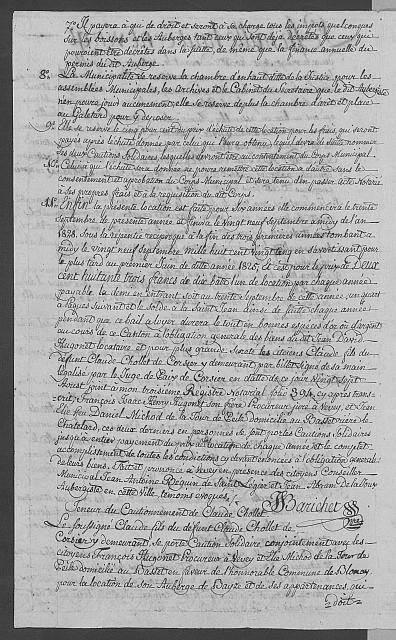 7.º Il payera à qui de droit et seront à sa charge tous les impots quelconques
sur les boissons et les Auberges tant ceux qui sont déja décretés que ceux qui
pourroient être décretés dans la suitte, de même que la finance annuelle du
permis du dit Auberge.
8.º La Municipalité se reserve la chambre d'enhaut ditte de la Justice, pour les
assemblées Municipales, les Archives et le Cabinet du Secretaire que le dit Aubergiste
nen pourra jouir aucunement, elle se reserve de plus la chambre d'arêt et place
au Galetard pour y deposer
9.º Elle se reserve le cinq pour cent du prix d'échute de cette location pour les frais, qui seront
payés après l'échute donnée par celui qui l'aura obtenu, lequel devra de suitte nommer
ses deux Cautions Solidaires lesquelles devront être au contentement du Corps Municipal
10.º Celui à qui l'échute sera donnée ne pourra remettre cette location à d'autre sans le
consentement et aprobation du Corps Municipal et sera tenu d'en passer acte Notarié
à ses propres frais et à la requisition du dit Corps.
11.º Enfin la presente location est faite pour Six années elle commencera le trente
Septembre de presente année et finira le Vingt neuf Septembre à midy de l'an
1828. Sous la repentie reciproque à la fin des trois premières années tombant à
midy le vingt neuf Septembre mille huit cent Vingt cinq en s'avertissant pour
le plus tard au premier Juin de ditte année 1825, et c'est pour le prix de Deux
cent huitante trois francs de dix batz l'un de location par chaque année
payable la demi en entrant soit au trente Septembre de cette année, un quart
à Pâques suivant et le Solde à la Saint Jean ainsi de suitte chaque année
pendant que ce bail à loyer durera le tout en bonnes espèces d'or ou d'argent
au cours de ce Canton à l'obligation generale des biens du dit Jean David
Hugonet locataire et pour plus grande Sureté les citoiens Claude fils du
défunt Claude Chollet de Corsier y demeurant par billet signé de sa main
légalisé par le Juge de Paix de Corsier en datte de ce jour Vingt Sept
Aoust joint à mon troisième Registre Notarial folio 394, cy après trans-
crit, François Isaac Henry Hugonet son frère, Procureur juré à Vevey, et Jean
Elie feu Daniel Michod de la Tour de Peilz domicilié au Basset rière le
Chatelard, ces deux derniers en personnes se sont portés Cautions Solidaires
jusqu'à entier payement du prix de location de chaque année et le complet
accomplissement de toutes les conditions cy devant enoncés à l'obligation generale
de leurs biens. Fait et prononcé à Vevey en presence des citoyens Conseiller
Municipal Jean Antoine Beguin de Saint Légier et Jean Abram De la Tour
Aubergiste en cette Ville, temoins requis.
Barichet Nre
Teneur du Cautionnement de Claude Chollet
Le soussigné Claude fils du defunt Claude Chollet de
Corsier y demeurant, se porte Caution Solidaire conjointement avec les
citoyens François Hugonet Procureur à Vevey et Elie Michod de la Tour de
Peilz domicilié au Basset en faveur de l'honnorable Commune de Blonay
pour la location de son Auberge de Bayse et de ses appartenances, qui
doit